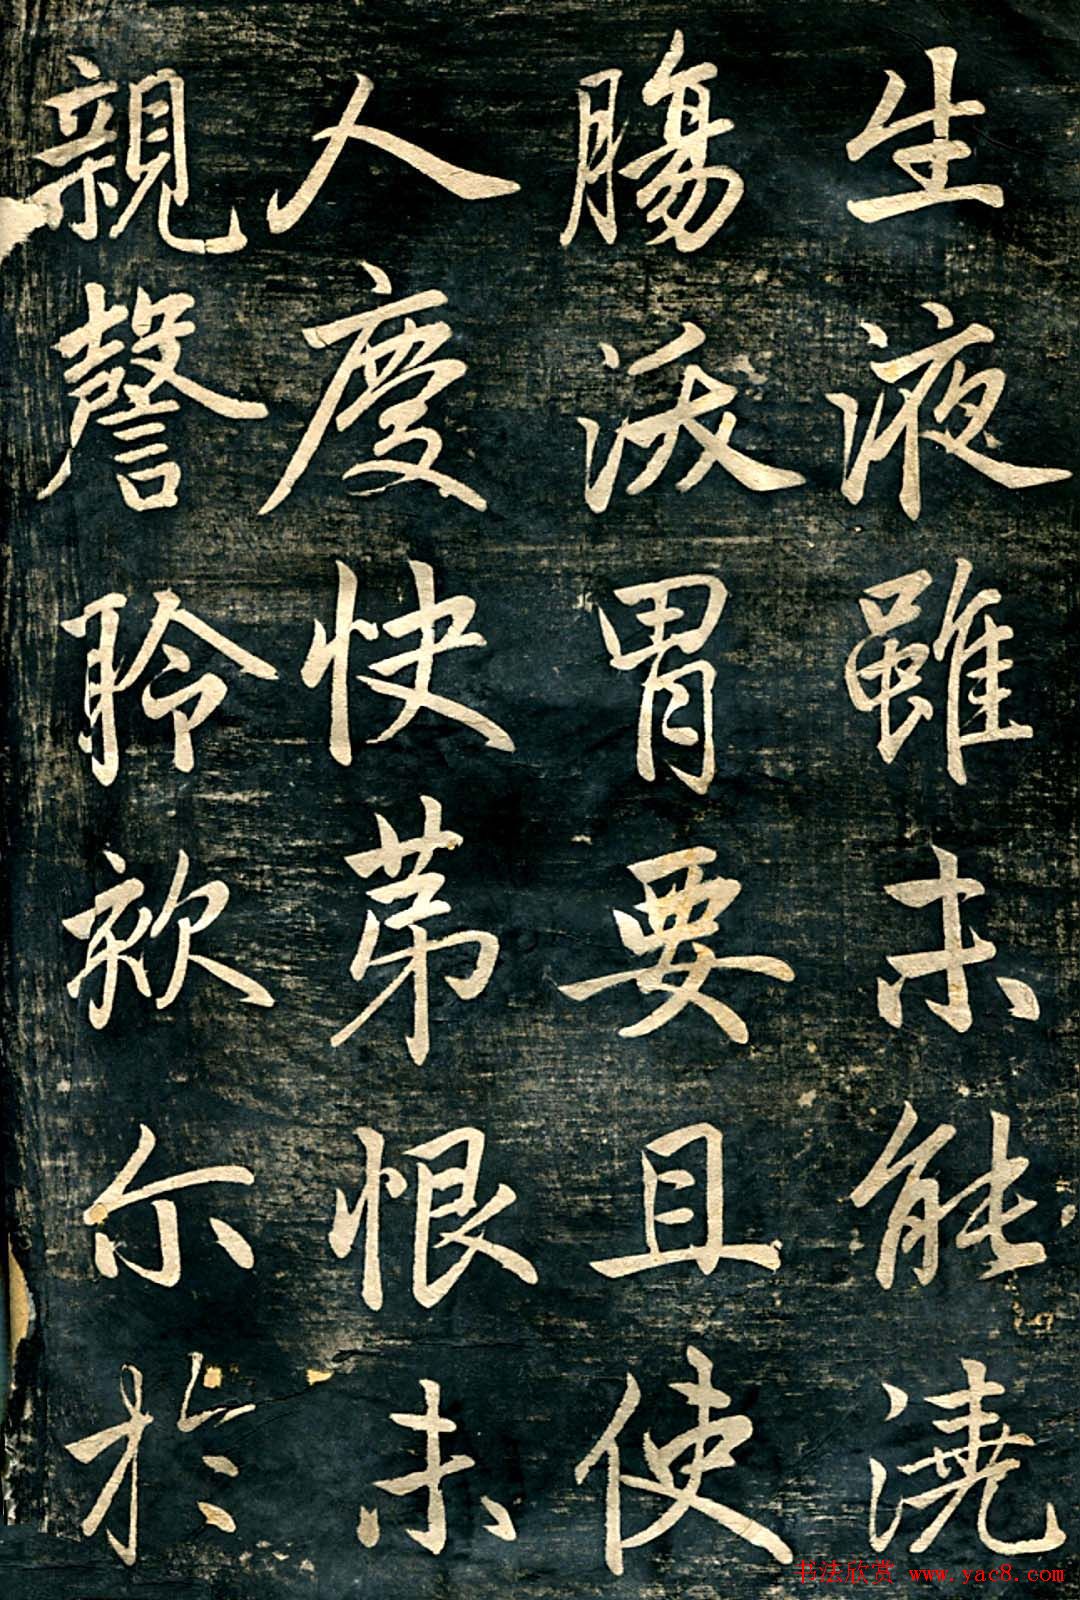 生液雖未能澆
腸沃胃要且使
人慶快苐恨未
親謦聆欬尒於
书法欣赏 www.yac8.com